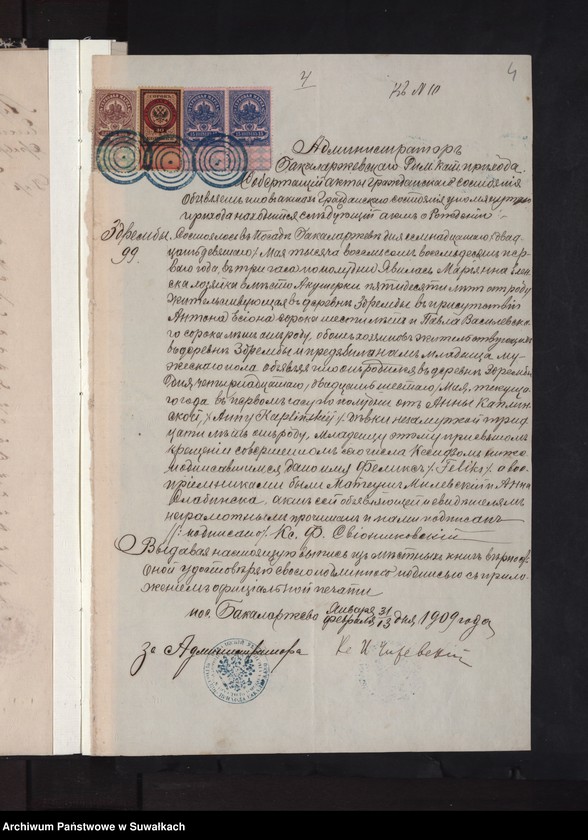 4
Къ N 10
4
Администраторъ
Бакаларжевскаго Рим. Кат. прихода
Содержащій акты гражданскаго состоянія
Объявляетъ что въ актахъ Гражданскаго состоянія упомянутаго
прихода находится слѣдующій актъ о Рожденіи :-
Здрембы.
99.
Состоялось въ Посадѣ Бакаларжевѣ дня семнадцатаго (двад
цать девятаго) Мая тысяча восемьсотъ восемьдесятъ пер
ваго года, въ три часа по полудни. Явилась Марьянна
хозяйка вмѣсто Акушерки пятидесяти лѣтъ отъ роду
жительствующая въ деревнѣ Здрембы въ присутствіи
Антона сорока шести лѣтъ и Павла Василевска
го сорока лѣтъ отъ роду, обоихъ хозяевъ жительствующихъ
въ деревнѣ Здрембы и предъявила намъ младенца му-
жескаго пола объявляя что онъ родился въ деревнѣ Здрембы
дня четырнадцатаго, (двадцать шестаго) Мая, текуща-
го года въ первомъ часу по полудни отъ Анны Каплин-
ской, /:Anny Kaplińskiej:/ дѣвки незамужной трид
цати лѣтъ отъ роду, Младенцу этому при святомъ
крещеніи совершенномъ сего числа Ксендзомъ ниже
подписавшимся дано имя Феликсъ /:Feliks:/ а вос-
пріемниками были Матеушъ Милевскій и Анна
Слабинска. актъ сей объявляющей и свидѣтелямъ
неграмотнымъ прочитанъ и нами подписанъ
/:подписано:/ Кс. Ф.
Выдавая настоящую выпись изъ мѣстныхъ книгъ вѣрность
оной удостовѣряю своею подписью съ прило-
женіемъ офиціальной печати
пос. Бакаларжево Января 31
Февраля 13 дня 1909 года
за Администратора Кс И.